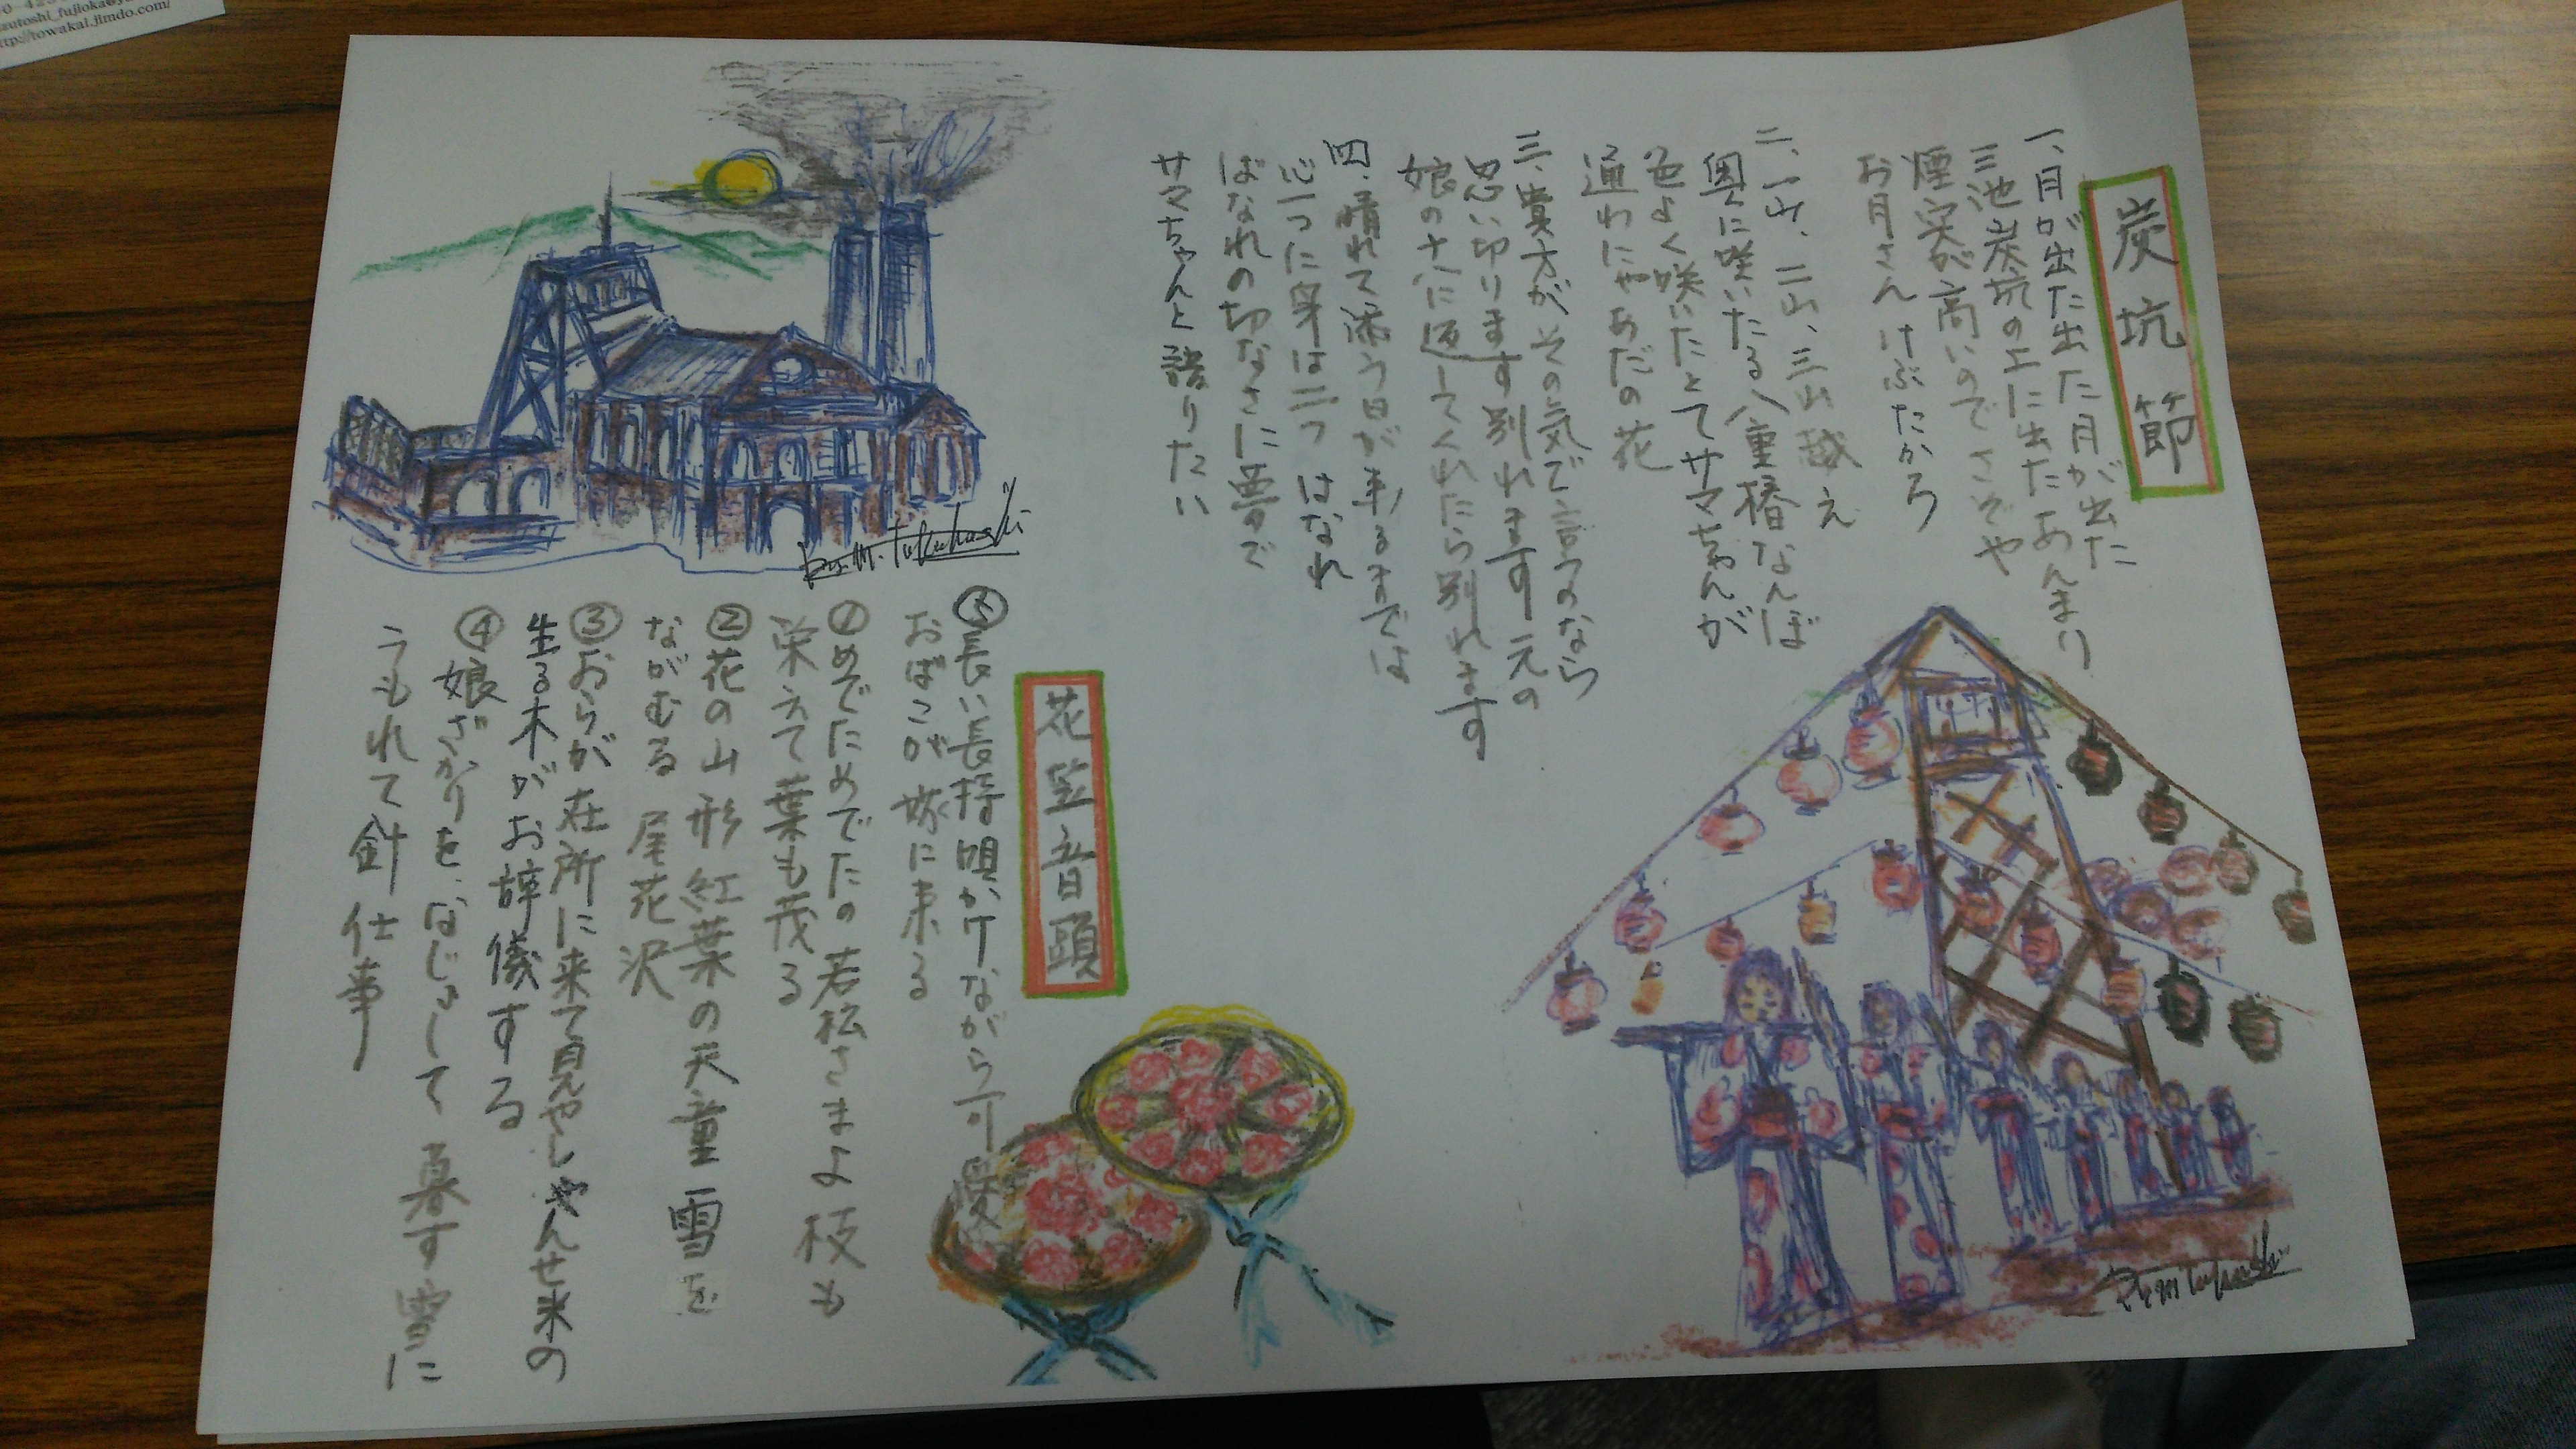 炭坑節
一、月が出た出た月が出た
三池炭坑の上に出たあんまり
煙突が高いのでさぞや
お月さんけぶたかろ
二、一山、二山、三山越え
奥に咲いたる八重椿なんぼ
色よく咲いたとてサマちゃんが
通わにゃあだの花
三、貴方がその気で言うのなら
思い切ります別れます元の
娘の十八に返してくれたら別れます
四、晴れて添う日が来るまでは
心一つに寄は二つはなれ
ばなれの切なさに夢で
サマちゃんと語りたい
花笠音頭
⑤長い長持唄かけながら可愛
おばこが嫁に来る
①めでためでたの若松さまよ枝も
栄えて葉も茂る
②花の山形紅葉の天童雪を
ながむる尾花沢
③おらが在所に来て見やしゃんせ米の
生る木がお辞儀する
④娘ざかりを、なじょして暮す雪に
うもれて針仕事
by.M.Tukuhashi
utoshi_fujioka@y
ttp://towakai.jimdo.com/